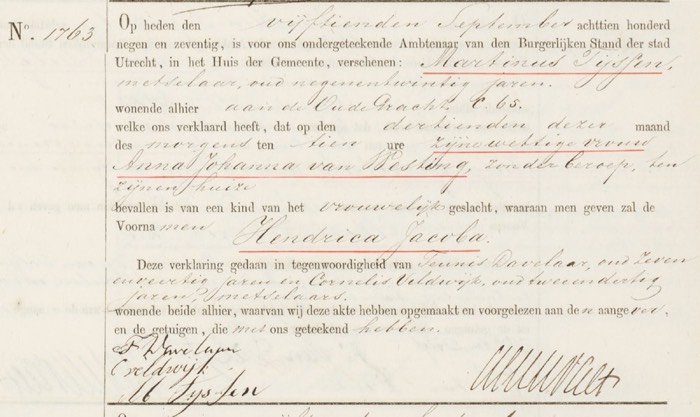 No. 1763
Op heden den vijftienden September achttien honderd
negen en zeventig, is voor ons ondergeteekende Ambtenaar van den Burgerlijken Stand der stad
Utrecht, in het Huis der Gemeente, verschenen: Martinus Tijssen,
metselaar, oud negenentwintig jaren.
wonende alhier aan de Oude Gracht. C. 65.
welke ons verklaard heeft, dat op den dertienden dezer maand
des morgens ten tien ure zijne wettige vrouw
Anna Johanna van Westing, zonder beroep, ten
zijnen huize
bevallen is van een kind van het vrouwelijk geslacht, waaraan men geven zal de
Voornamen
Hendrica Jacoba.
Deze verklaring gedaan in tegenwoordigheid van Teunis Davelaar, oud zeven
en veertig jaren en Cornelis Veldwijk, oud tweeendertig
jaren, metselaars.
wonende beide alhier, waarvan wij deze akte hebben opgemaakt en voorgelezen aan den aangever,
en de getuigen, die met ons geteekend hebben.
T Davelaar
C Veldwijk
M Tyssen